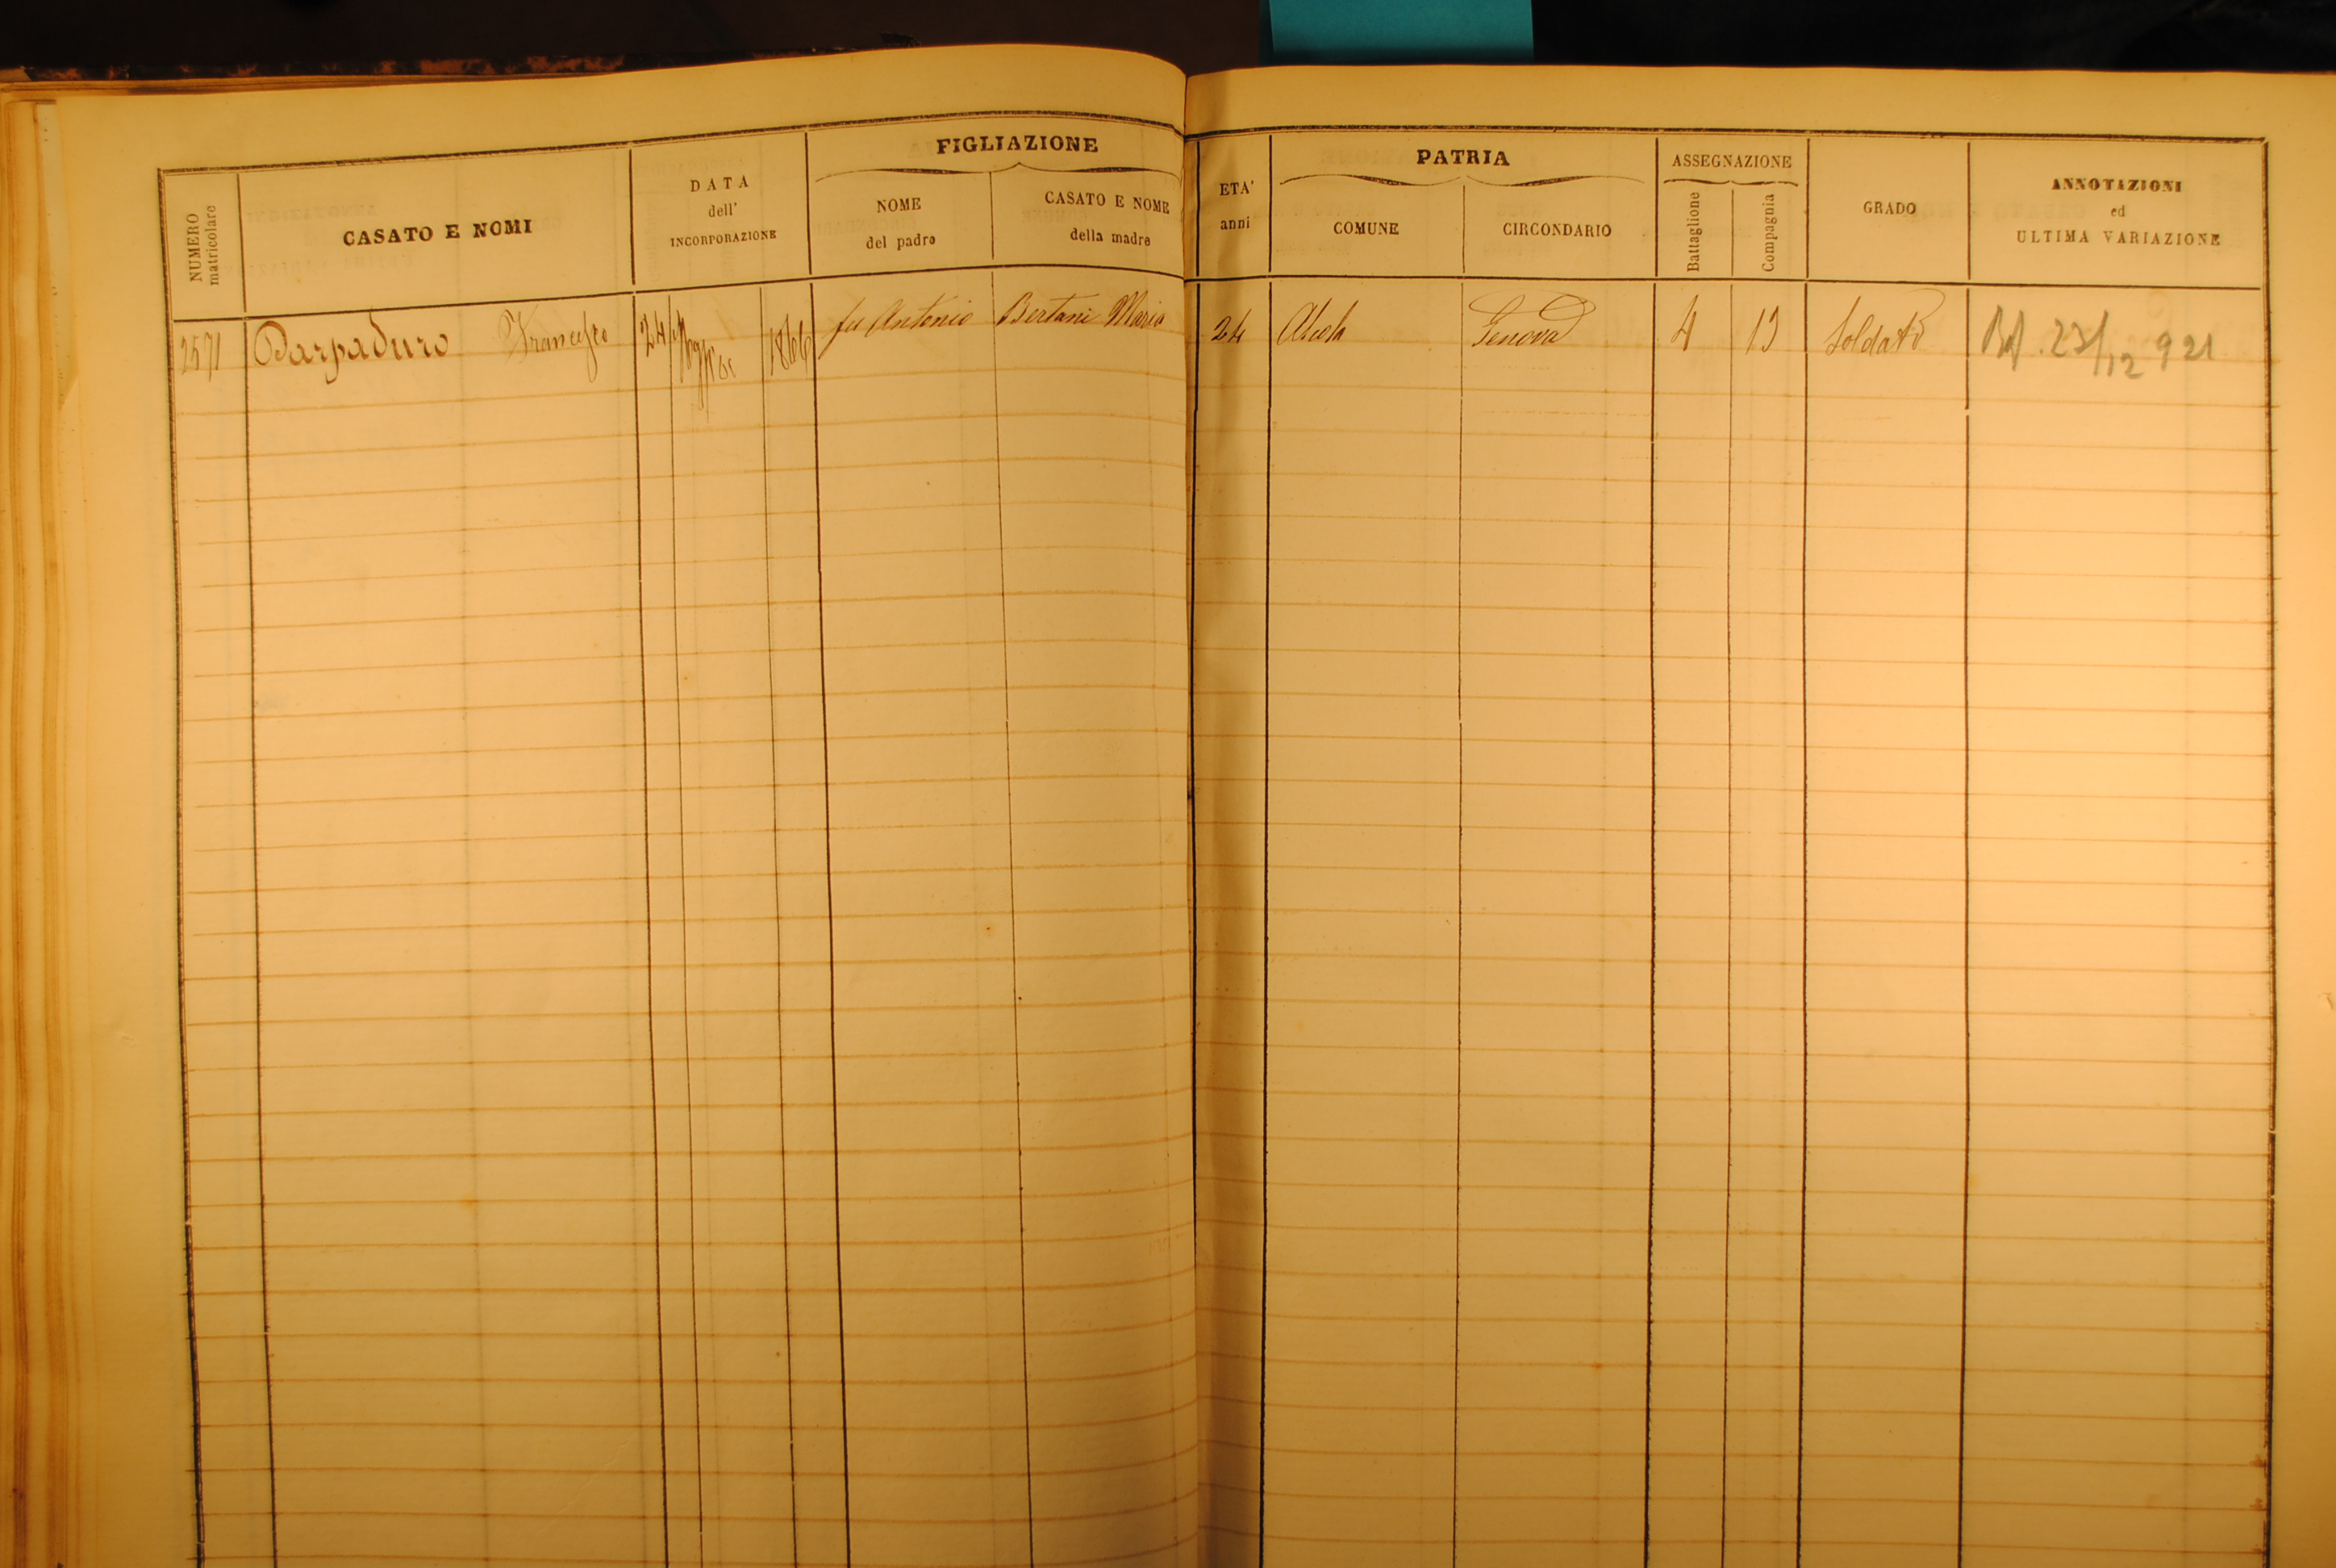 FIGLIAZIONE
PATRIA
ASSEGNAZIONE
NUMERO matricolare
CASATO E NOMI
DATA
dell'
INCORPORAZIONE
NOME
del padre
CASATO E NOME
della madre
ETA'
anni
COMUNE
CIRCONDARIO
Battaglione
Compagnia
GRADO
ANNOTAZIONI
ed
ULTIMA VARIAZIONE
2571 Darpaduro Francesco 24 1866 fu Antonio Bertani Maria 24 Genova 4 13 Soldato 23/12 921